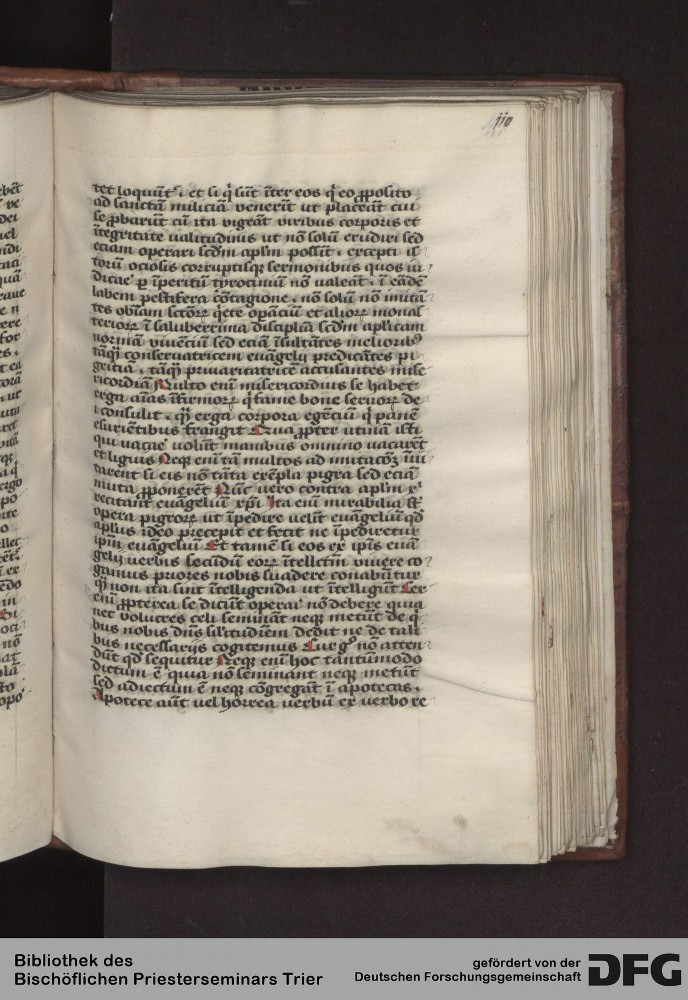 110
tet loquūt᷑. et si q̄ sūt īter eos q̄ eo ꝓposito
ad sanctā miliciā venerūt ut placeāt cui
se ꝓbarūt cū ita vigeāt viribus corporis et
ītegritate ualitudinis ut nō solū erudiri sed
eciam operari scd̄m apl̄m possūt. excepti is
torū ociosis corruptisqꝫ sermonibus quos iu
dicar̄ ꝑ īperitū tyrocinū nō valeāt. ī eādē
labem pestifera cōtagione. nō solū nō imitā
tes obiam sctōꝝ q̄ete opāciū et alioꝝ monas
terioꝝ ī saluberrima disciplīa scd̄m apl̄icam
normā viuēciū sed eciā īsultātes melioribꝰ
tāq̄ꝫ conseruatricem euāgelij predicātes pi
gritiā. tāq̄ꝫ p̄uaricatricē accusantes mise
ricordiā Multo enī misericordius se habet
erga aīas īfirmoꝝ q̄ fame bone seruoꝝ de
i consulit. q̄ꝫ erga corpora egēciū q̄ panē
esuriētibus frangit Qua ꝓpter utinā isti
qui vacar̄ volūt manibus omnino vacarēt
et liguis Neqꝫ enī tā multos ad imitacōꝫ īui
tarent si eis nō tāta exēpla pigra sed eciā
muta ꝓponerēt Nūc vero contra apl̄m xp̄i
recitant euāgeliū xp̄i Ita enī mirabilia st̄
opera pigroꝝ ut īpedire velīt euāgeliū qd̄
apl̄us ideo precepit et fecit ne īpediretur
ip̄m euāgeliū Et tamē si eos ex ip̄is euā
gelij verbis secūdū eoꝝ ītellectū viuere co
gamus priores nobis suadere conabūtur
q̄ꝫ non ita sint ītelligenda ut ītelligūt Cer
enī ꝓpterea se dicūt operari nō debere quia
nec volucres celi seminant neqꝫ metūt de q̄
bus nobis dn̄s sīlitudīem dedit ne de tali
bus necessarijs cogitemus Cur gͦ nō atten
dūt qd̄ sequitur Neqꝫ enī hoc tantūmodo
dictum ē quia nō seminant neqꝫ metūt
sed adiectum ē neqꝫ cōgregāt ī apotecas.
Apotece aūt vel horrea verbū ex verbo re
Bibliothek des
Bischöflichen Priesterseminars Trier
gefördert von der
Deutschen Forschungsgemeinschaft
DFG